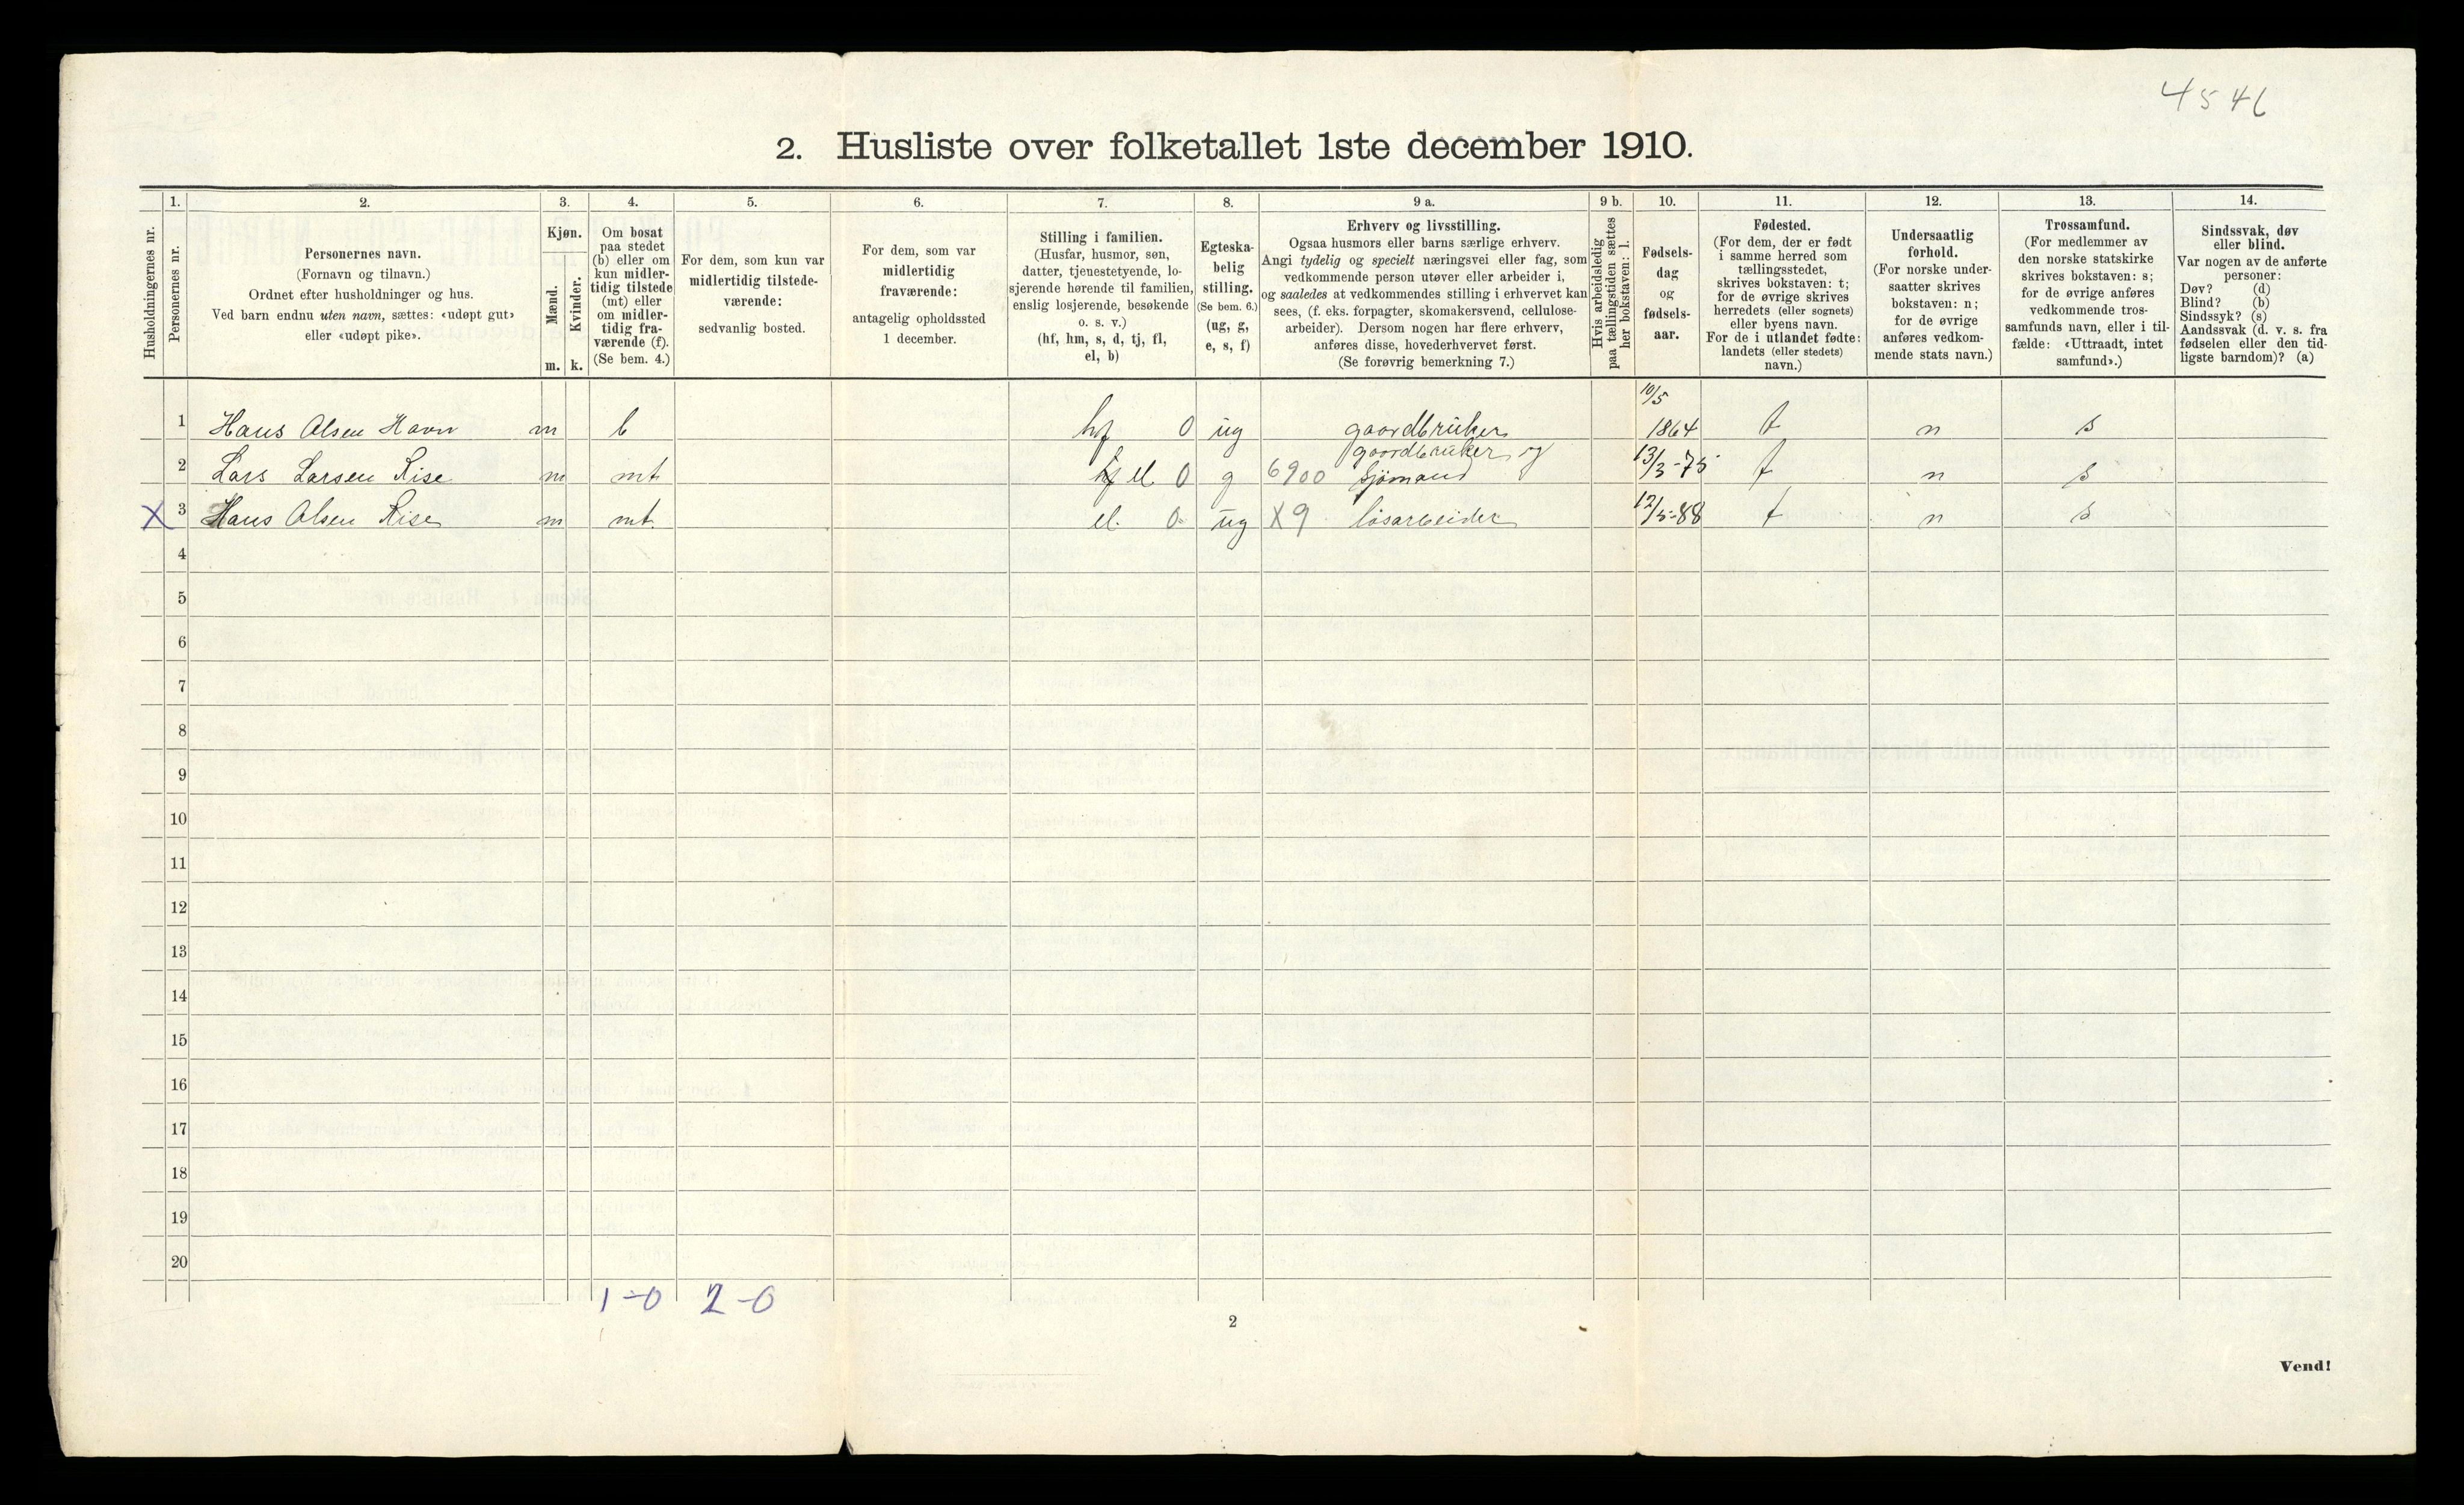 4546
2. Husliste over folketallet 1ste december 1910.
Husholdningernes nr.
1.
Personernes nr.
2.
Personernes navn.
(Fornavn og tilnavn.)
Ordnet efter husholdninger og hus.
Ved barn endnu uten navn, sættes: «udøpt gut»
eller «udøpt pike».
3.
Kjøn.
Mænd.
Kvinder.
m. k.
4.
Om bosat
paa stedet
(b) eller om
kun midler-
tidig tilstede
(mt) eller
om midler-
tidig fra-
værende (f).
(Se bem. 4.)
5.
For dem, som kun var
midlertidig tilstede-
værende:
sedvanlig bosted.
6.
For dem, som var
midlertidig
fraværende:
antagelig opholdssted
1 december.
7.
Stilling i familien.
(Husfar, husmor, søn,
datter, tjenestetyende, lo-
sjerende hørende til familien,
enslig losjerende, besøkende
o. s. v.)
(hf, hm, s, d, tj, fl,
el, b)
8.
Egteska-
belig
stilling.
(Se bem. 6.)
(ug, g,
e, s, f)
9 a.
Erhverv og livsstilling.
Ogsaa husmors eller barns særlige erhverv.
Angi tydelig og specielt næringsvei eller fag, som
vedkommende person utøver eller arbeider i,
og saaledes at vedkommendes stilling i erhvervet kan
sees, (f. eks. forpagter, skomakersvend, cellulose-
arbeider). Dersom nogen har flere erhverv,
anføres disse, hovederhvervet først.
(Se forøvrig bemerkning 7.)
9 b.
Hvis arbeidsledig
paa tællingstiden sættes
her bokstaven: l.
10.
Fødsels-
dag
og
fødsels-
aar.
11.
Fødested.
(For dem, der er født
i samme herred som
tællingsstedet,
skrives bokstaven: t;
for de øvrige skrives
herredets (eller sognets)
eller byens navn.
For de i utlandet fødte:
landets (eller stedets)
navn.)
12.
Undersaatlig
forhold.
(For norske under-
saatter skrives
bokstaven: n;
for de øvrige
anføres vedkom-
mende stats navn.)
13.
Trossamfund.
(For medlemmer av
den norske statskirke
skrives bokstaven: s;
for de øvrige anføres
vedkommende tros-
samfunds navn, eller i til-
fælde: «Uttraadt, intet
samfund».)
14.
Sindssvak, døv
eller blind.
Var nogen av de anførte
personer:
Døv? (d)
Blind? (b)
Sindssyk? (s)
Aandssvak (d. v. s. fra
fødselen eller den tid-
ligste barndom)? (a)
1 Hans Olsen Havn m b hf 0 ug gaardbruker 10/5 1864 t n s
2 Lars Larsen Rise m mt hf el 0 g 6900 gaardbruker og sjømand 13/3-75 t n s
X 3 Hans Olsen Rise m mt. el. 0 ug X9 løsarbeider 12/5-88 t n s
4
5
6
7
8
9
10
11
12
13
14
15
16
17
18
19
20
1-0 2-0
2
Vend!